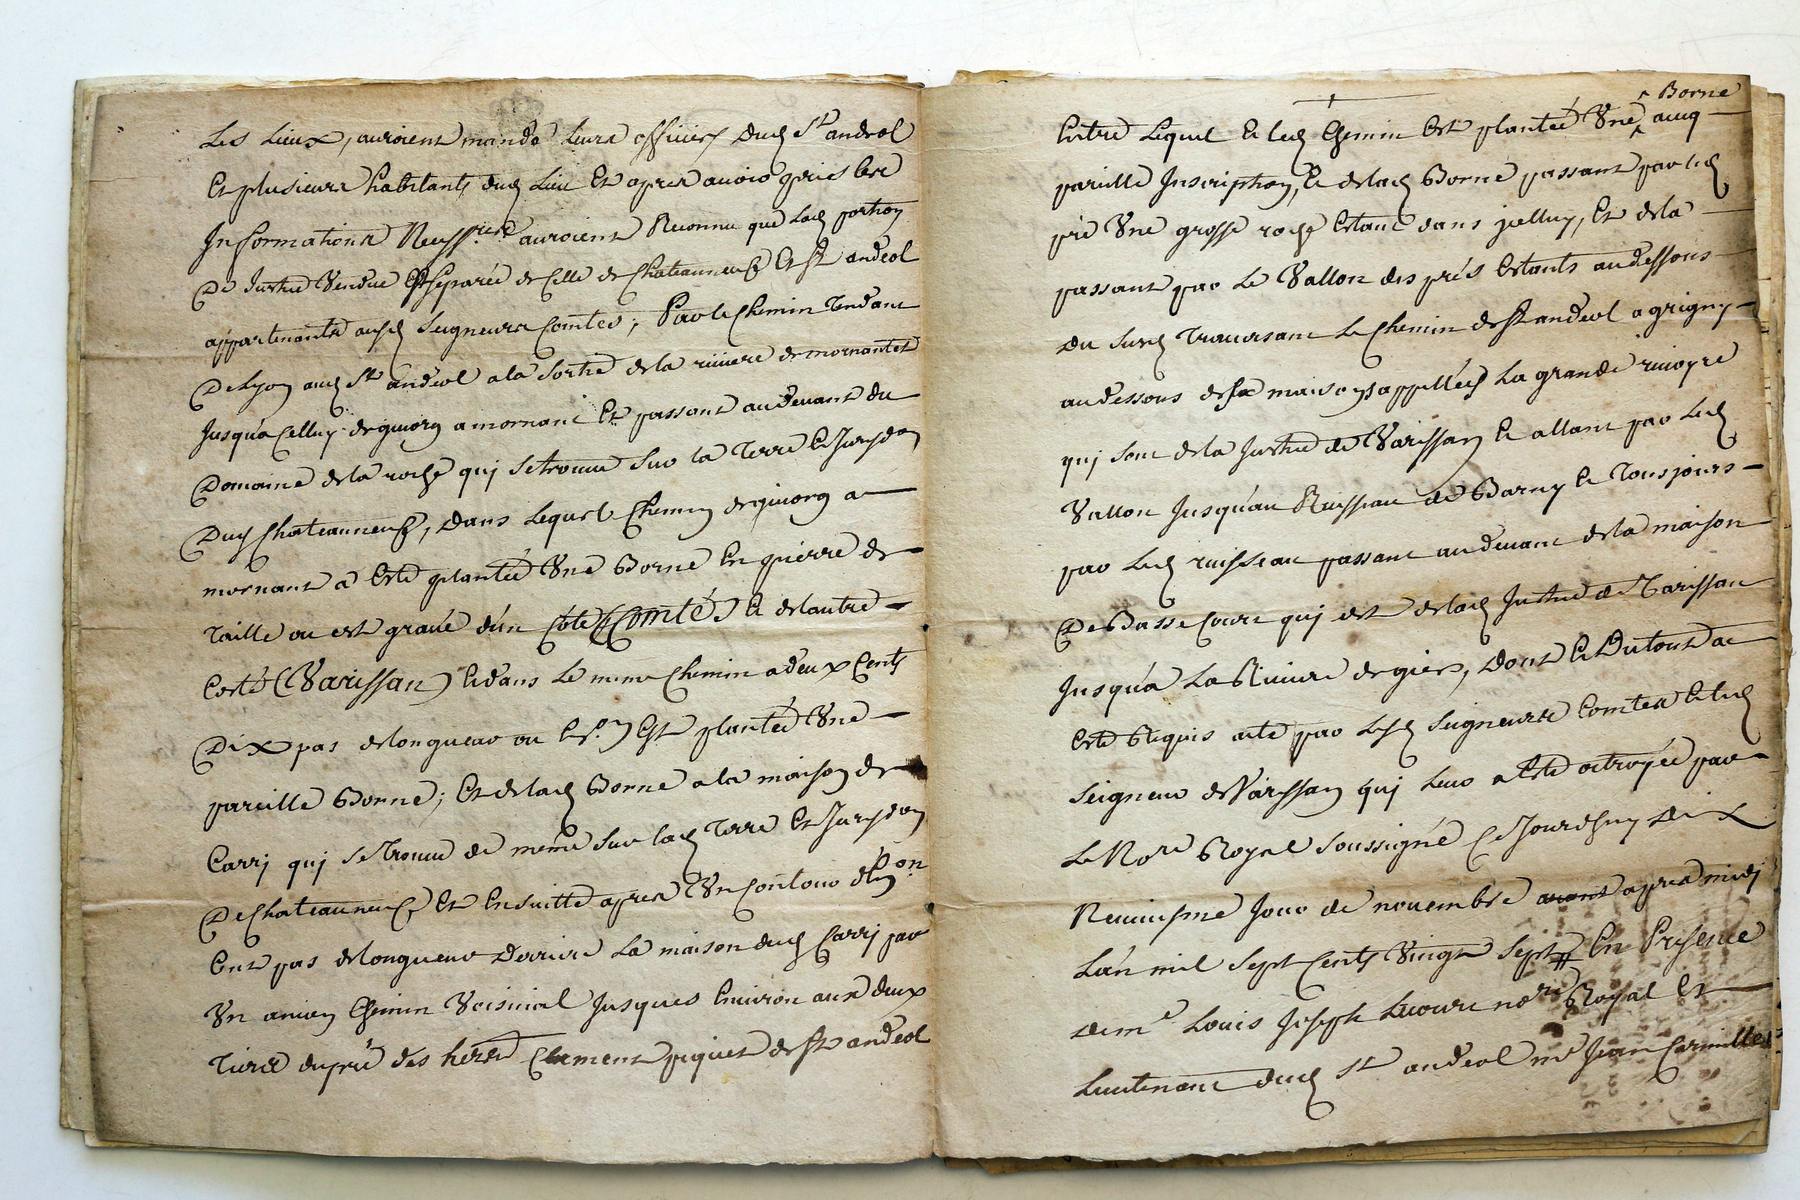 Les Lieux, auroient mandé leurs officiers dud St andeol
Et plusieurs habitants dud Lieu Et apres auoir pris les
Informations Necessres auroient Reconnu que lad portion
De Justice Vendue Est separée de Celle de Chateauneuf Et St andeol
appartenants ausd Seigneurs Comtes; Par le Chemin Tendant
De Lyon aud St andeol a la Sortie de la riuiere de mornantet
Jusqu'a Celluy de giuors a mornant Et passant au deuant du
Domaine de la roche qui se trouue sur la Terre Et Jurisdon
Dud Chateauneuf, dans Lequel Chemin de giuors a
mornant a Esté plantée Vne Borne En pierre de
Taille ou est graué d'un Côté (Comté) Et de lautre
Costé (Varissan) Et dans Le meme Chemin a deux Cents
Dix pas de longueur ou En Est plantée Vne
pareille Borne; Et de lad Borne a la maison de
Carri qui se Trouue de même Sur lad Terre Et Jurisdon
De Chateauneuf Et Ensuitte apres Vn Contour d'Enon
Cent pas de longueur Derriere La maison dud Carri par
Vn ancien Chemin Voisinal Jusques Enuiron aux deux
Tiers du pré des hers Clement piquet de St andeol
Entre Lequel Et led Chemin Est plantée Vne ^ Borne ^ aueq
pareille Inscription, Et de lad Borne passant par led
pré Vne grosse roche Estant dans jcelluy, Et de la
passant par Le Vallon des prés Estants au dessous
Du Susd Trauersant Le Chemin de St andeol a grigny
au dessous des maisons appellées La grande riuoyre
qui sont de la Justice de Varissan Et allant par Led
Vallon Jusqu'au Ruisseau de Barny Et Tousjours
par Led ruisseau passant au deuant de la maison
De Basse Cour qui est de lad Justice de Varissan
Jusqu'a La Riuiere de gier, Dont Et Du tout a
Esté Requis acte par Lesd Seigneurs Comtes Et led
Seigneur de Varissan qui Leur a Esté octroyée par
Le Nore Royal Soussigné Ce Jourdhuy Dix
Neuuieme Jour de nouembre apres midi
L'an mil Sept Cents Vingt Sept En Presence
de me Louis Joseph Lecourt nore Royal Et
Lieutenant dud St andeol me Jean